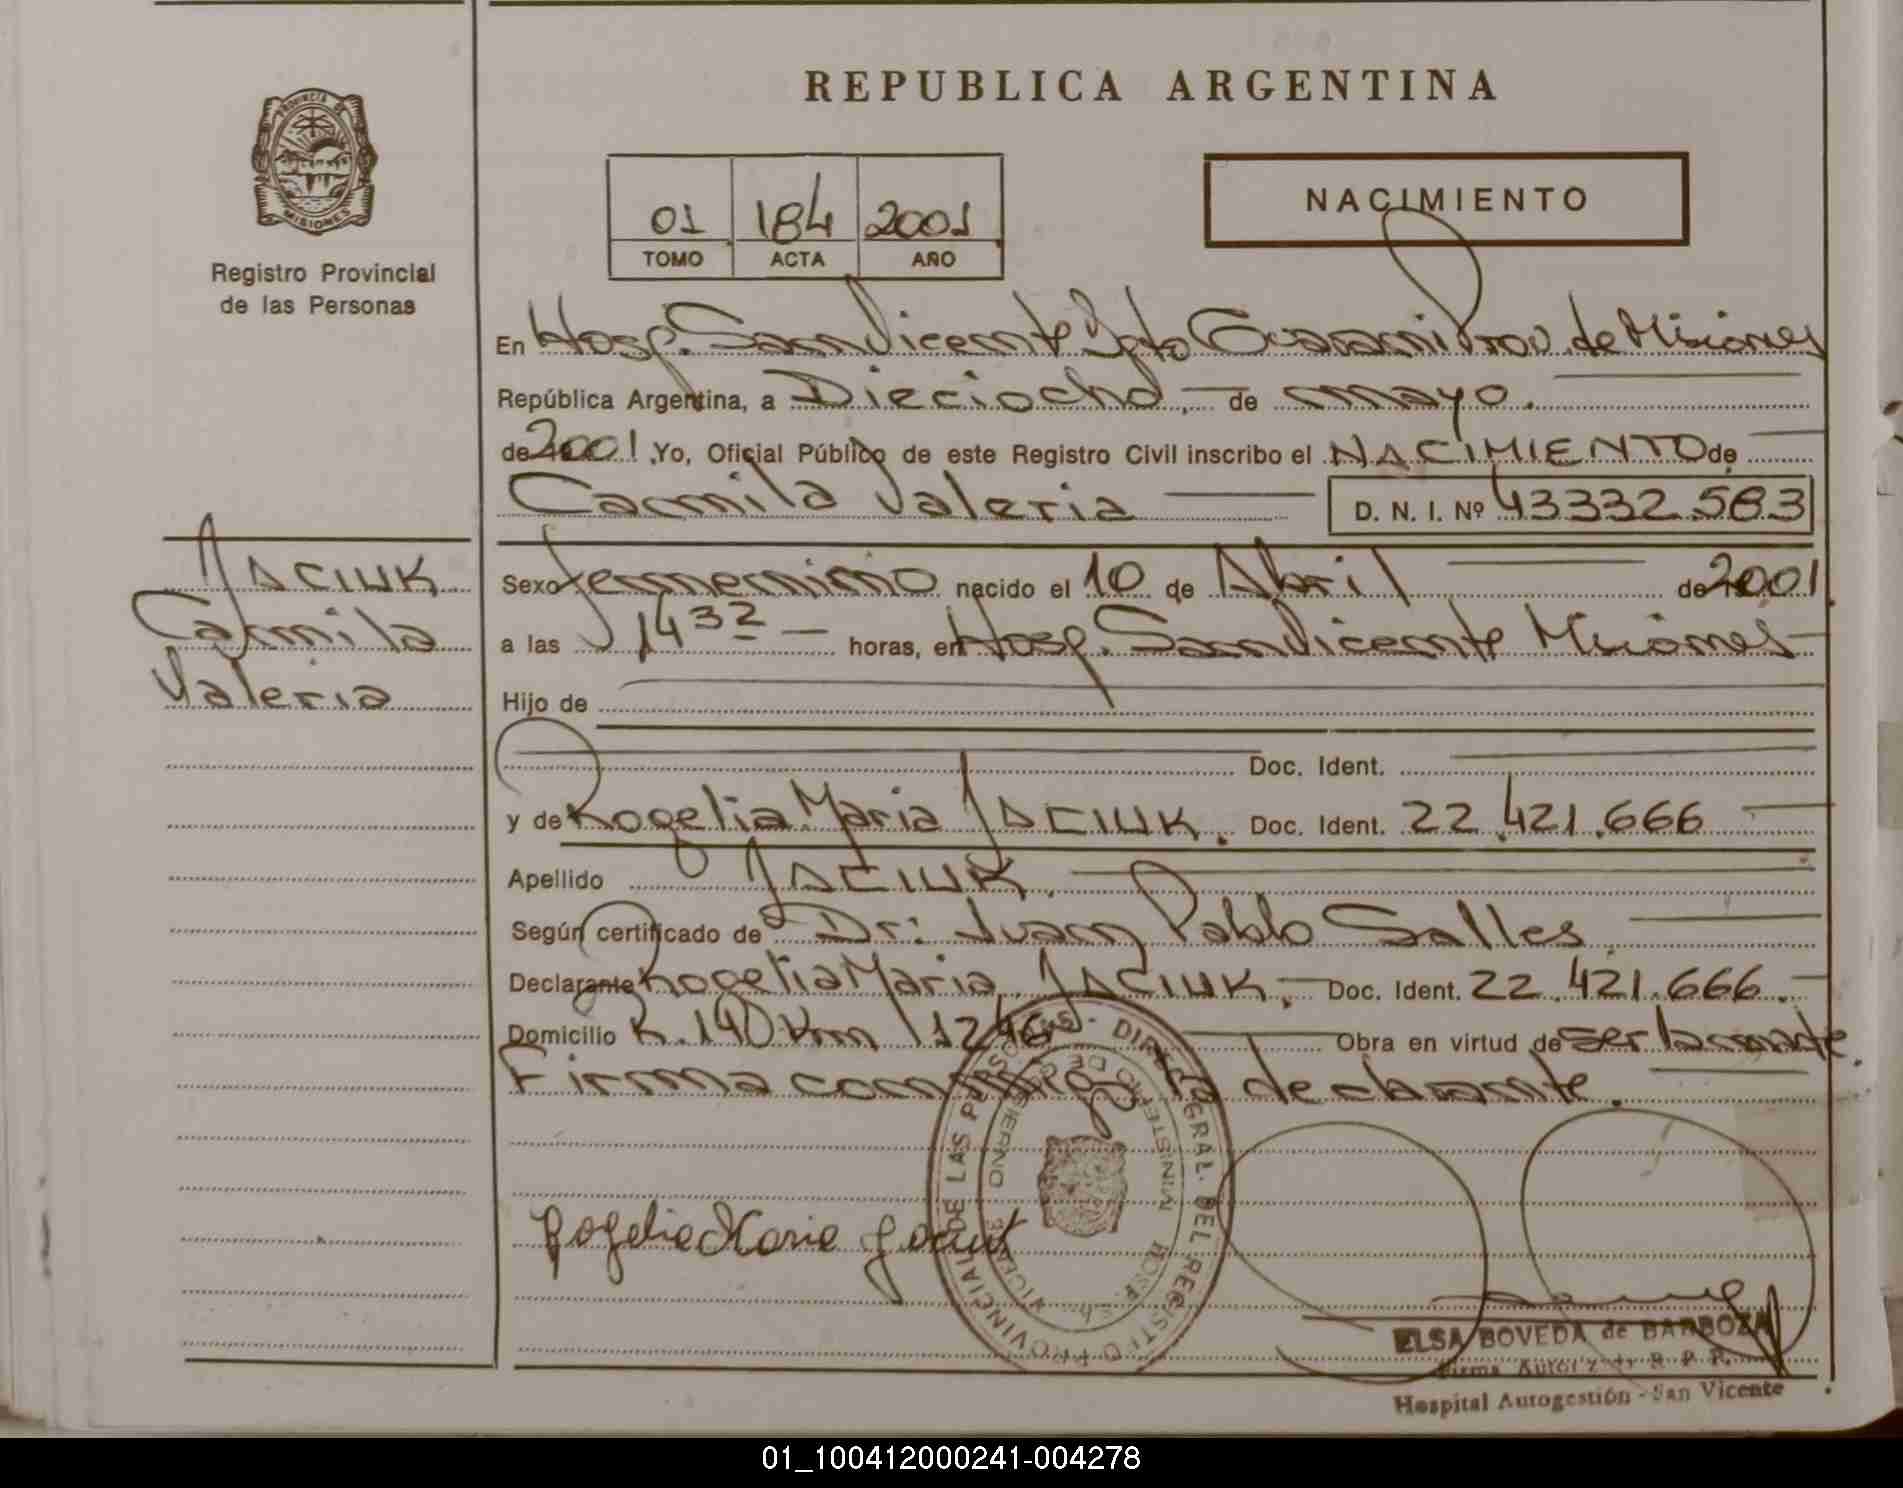 REPUBLICA ARGENTINA
PROVINCIA DE
MISIONES
Registro Provincial
de las Personas
01 184 2001
TOMO ACTA AÑO
NACIMIENTO
En Hosp. San Vicente Dpto Guarani Prov. de Misiones
República Argentina, a Dieciocho, de mayo.
de 2001 Yo, Oficial Público de este Registro Civil inscribo el NACIMIENTO de
Camila Valeria D. N. I. Nº 43332.583
JACIUK
Camila
Valeria
Sexo femenino nacido el 10 de Abril de 2001
a las 14 32 horas, en Hosp. San Vicente Misiones
Hijo de
Doc. Ident.
y de Rogelia Maria JACIUK. Doc. Ident. 22.421.666
Apellido JACIUK.
Según certificado de Dr: Juan Pablo Salles
Declarante Rogelia Maria JACIUK. Doc. Ident. 22.421.666.
Domicilio R. 14 Km 1246 Obra en virtud de ser la madre.
Firma conmigo la declarante.
Rogelia Maria Jaciuk
DIREC. GRAL. DEL REGISTRO PROVINCIAL DE LAS PERSONAS
MINISTERIO DE GOBIERNO
HOSP. S. VICENTE
ELSA BOVEDA de BARBOZA
Firma Autoriz. R. P. P.
Hospital Autogestión - San Vicente
01_100412000241-004278